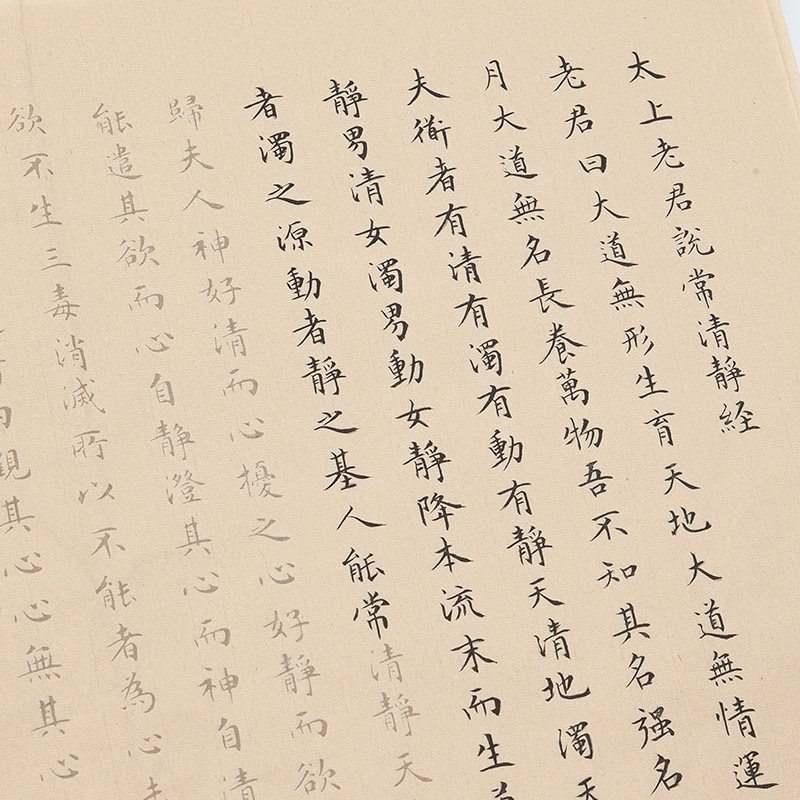 太上老君說常清靜経
老君曰大道無形生育天地大道無情運
月大道無名長養萬物吾不知其名强名
夫衜者有清有濁有動有靜天清地濁天
靜男清女濁男動女靜降本流末而生
者濁之源動者靜之基人能常清靜天
歸夫人神好清而心擾之心好靜而欲
能遣其欲而心自靜澄其心而神自清
欲不生三毒消滅所以不能者為心
內觀其心心無其心